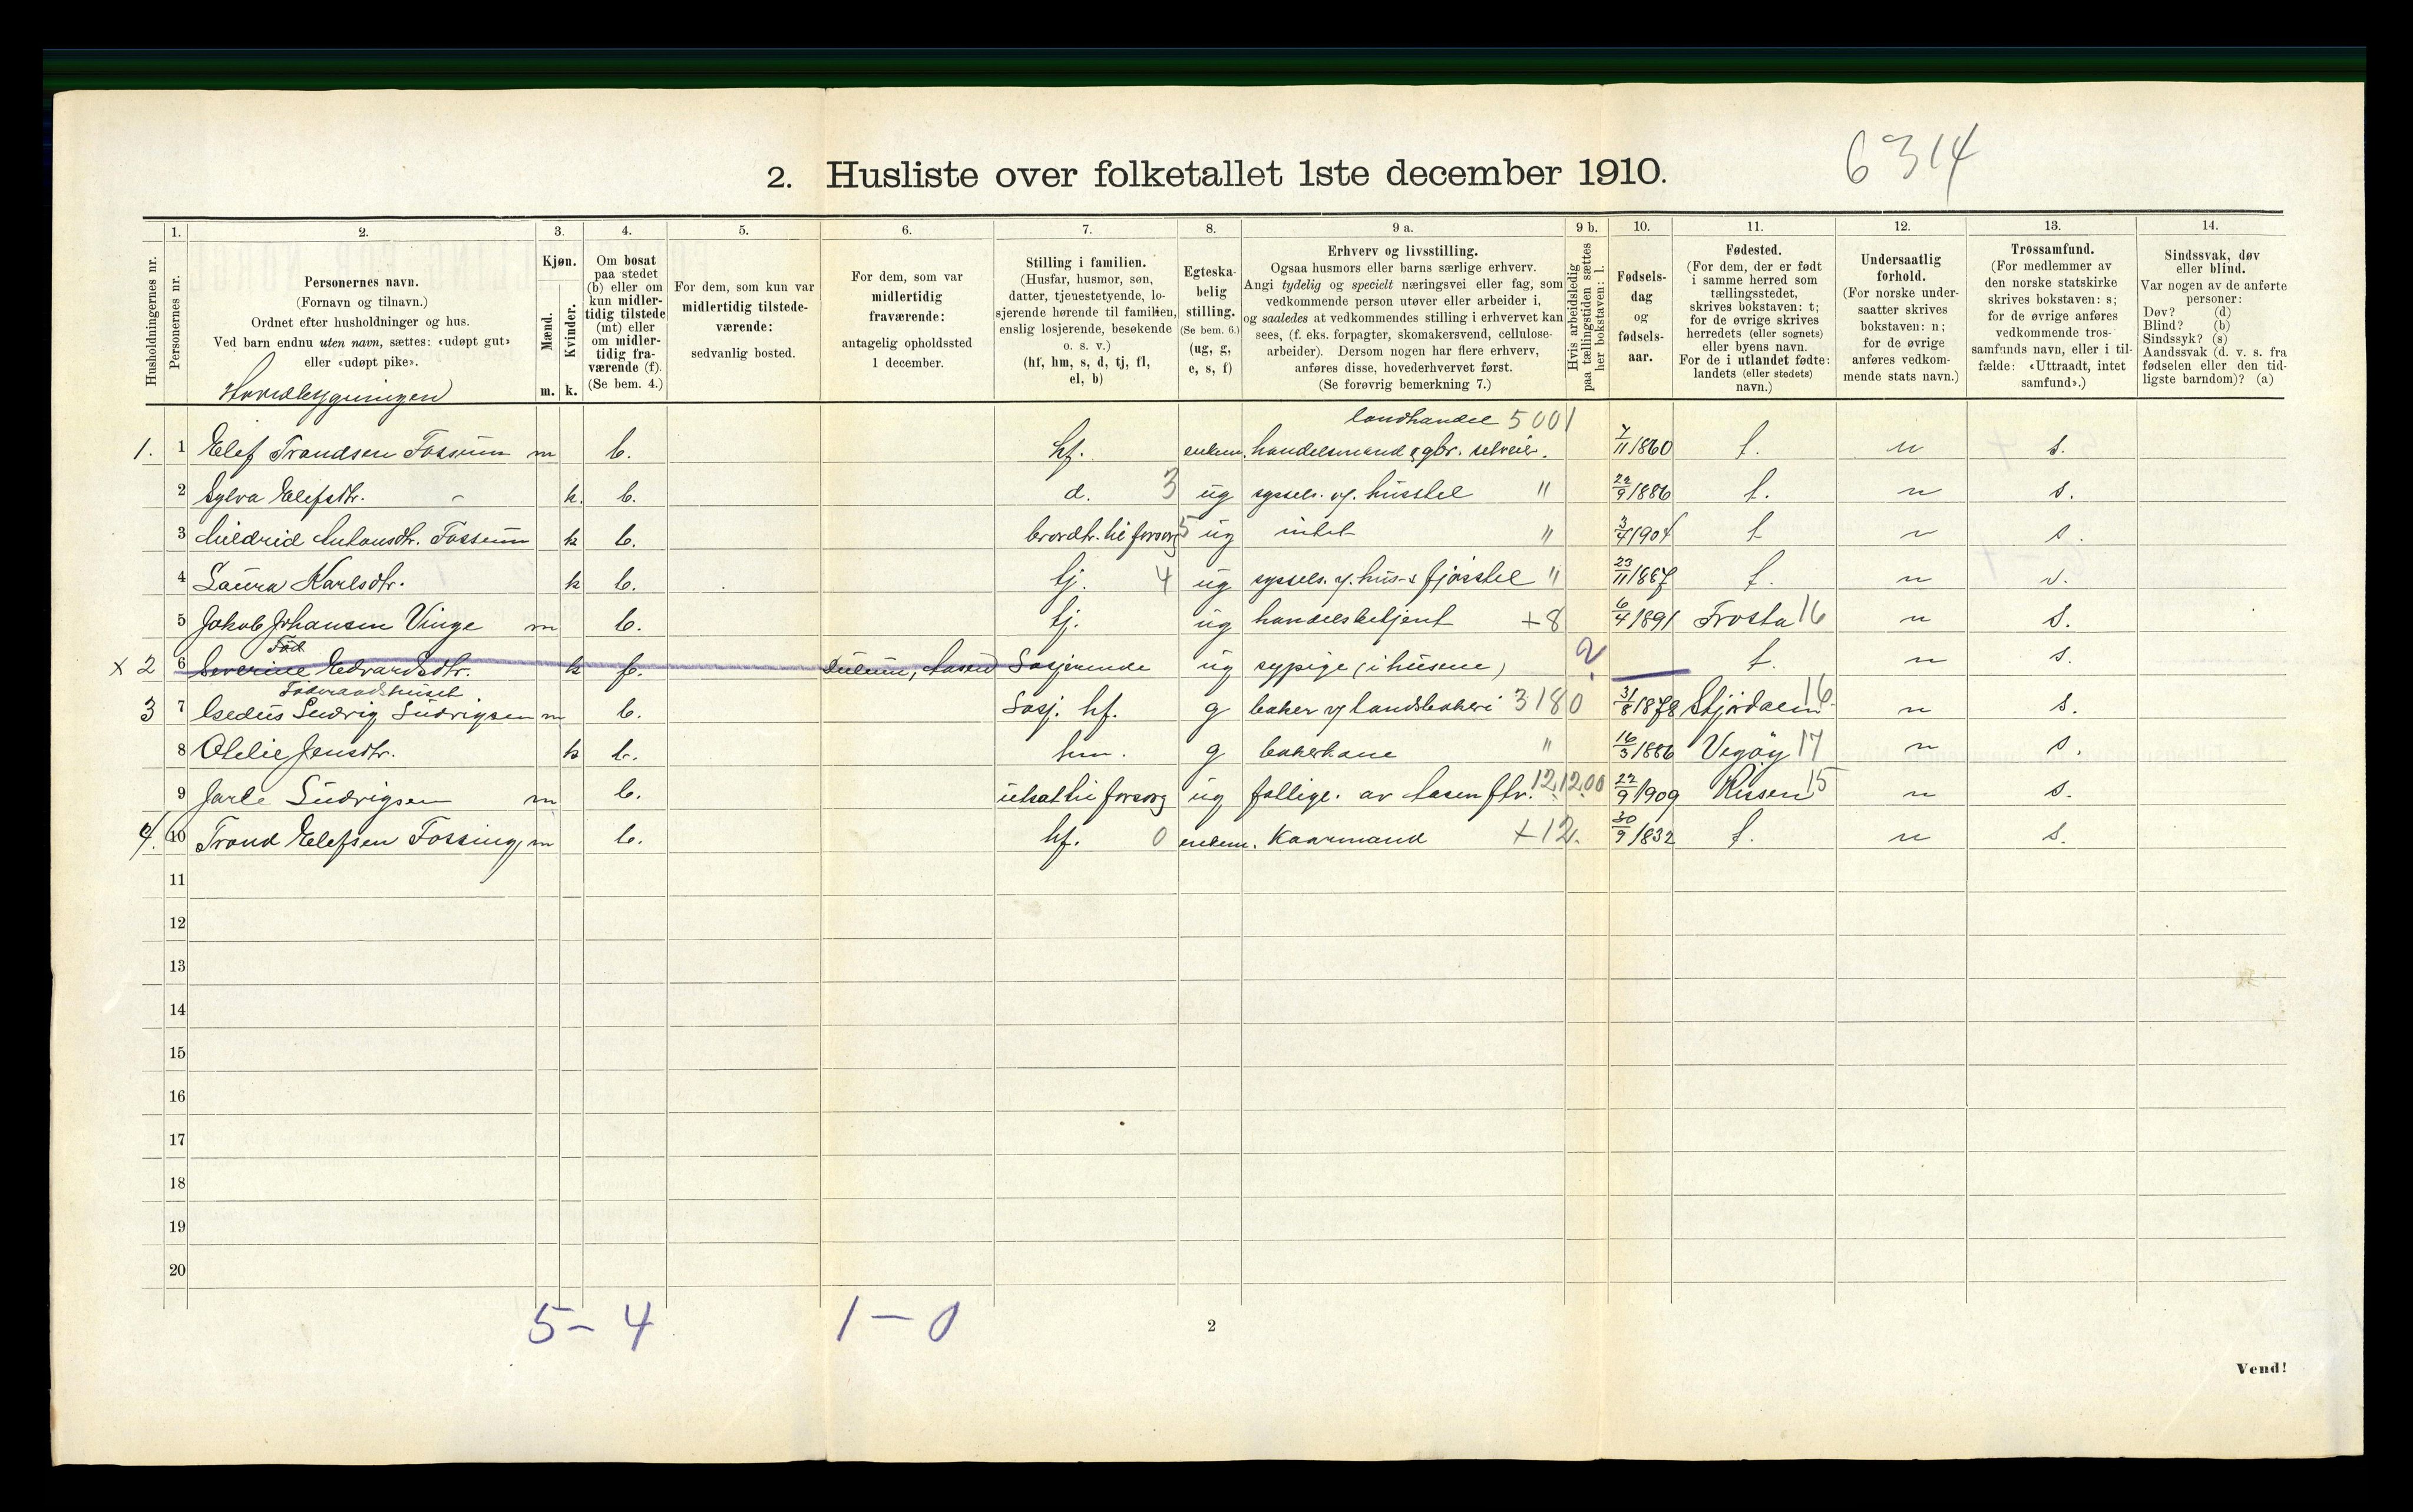 6314
2. Husliste over folketallet 1ste december 1910.
1. 2. 3. 4. 5. 6. 7. 8. 9 a. 9 b. 10. 11. 12. 13. 14.
Husholdningernes nr.
Personernes nr.
Personernes navn.
(Fornavn og tilnavn.)
Ordnet efter husholdninger og hus.
Ved barn endnu uten navn, sættes: «udøpt gut»
eller «udøpt pike».
Hovedbygningen
Kjøn.
Mænd.
Kvinder.
m. k.
Om bosat
paa stedet
(b) eller om
kun midler-
tidig tilstede
(mt) eller
om midler-
tidig fra-
værende (f).
(Se bem. 4.)
For dem, som kun var
midlertidig tilstede-
værende:
sedvanlig bosted.
For dem, som var
midlertidig
fraværende:
antagelig opholdssted
1 december.
Stilling i familien.
(Husfar, husmor, søn,
datter, tjenestetyende, lo-
sjerende hørende til familien,
enslig losjerende, besøkende
o. s. v.)
(hf, hm, s, d, tj, fl,
el, b)
Egteska-
belig
stilling.
(Se bem. 6.)
(ug, g,
e, s, f)
Erhverv og livsstilling.
Ogsaa husmors eller barns særlige erhverv.
Angi tydelig og specielt næringsvei eller fag, som
vedkommende person utøver eller arbeider i,
og saaledes at vedkommendes stilling i erhvervet kan
sees, (f. eks. forpagter, skomakersvend, cellulose-
arbeider). Dersom nogen har flere erhverv,
anføres disse, hovederhvervet først.
(Se forøvrig bemerkning 7.)
Hvis arbeidsledig
paa tællingstiden sættes
her bokstaven: l.
Fødsels-
dag
og
fødsels-
aar.
Fødested.
(For dem, der er født
i samme herred som
tællingsstedet,
skrives bokstaven: t;
for de øvrige skrives
herredets (eller sognets)
eller byens navn.
For de i utlandet fødte:
landets (eller stedets)
navn.)
Undersaatlig
forhold.
(For norske under-
saatter skrives
bokstaven: n;
for de øvrige
anføres vedkom-
mende stats navn.)
Trossamfund.
(For medlemmer av
den norske statskirke
skrives bokstaven: s;
for de øvrige anføres
vedkommende tros-
samfunds navn, eller i til-
fælde: «Uttraadt, intet
samfund».)
Sindssvak, døv
eller blind.
Var nogen av de anførte
personer:
Døv? (d)
Blind? (b)
Sindssyk? (s)
Aandssvak (d. v. s. fra
fødselen eller den tid-
ligste barndom)? (a)
landhandel 5001
1. 1 Elef Trondsen Fossum m b. hf. enkem. handelsmand & gbr. selveier. 7/11 1860 t. n s.
2 Sylva Elefsdtr. - k. b. d. 3 ug syssels. v. husstel " /9 1886 t. n s.
3 Mildrid Antonsdtr. Fossum k b. brordtr. til forsorg 5 ug intet " 3/4 1904 t n s.
4 Laura Karlsdtr. k b. tj. 4 ug syssels. v. hus- & fjøsstel " 23/11 1887 t. n s.
5 Jakob Johansen Vinge m b. tj. ug handelsbetjent +8 6/4 1891 Frosta 16 n s.
x 2 6 Severine Edvardsdtr. k f. Aasen Losjerende ug sypige (i husene) 2 t. n s.
3 7 Ludvig Ludvigsen m b. Losj. hf. g baker v landsbakeri 3180 31/8 1878 Stjørdalen 16 n s.
8 Otelie Jensdtr. k b. hm. g bakerkone " 16/3 1886 Vegøy 17 n s.
9 Jarle Ludvigsen m b. utsat til forsorg ug fattigu. av Aasen ftv. 12,12.00 22/9 1909 Rissen 15 n s.
4. 10 Trond Elefsen Fossing, m b. hf. 0 enkem. Kaarmand +12. 30/9 1832 t. n s.
11
12
13
14
15
16
17
18
19
20
5 - 4 1 - 0
2
Vend!